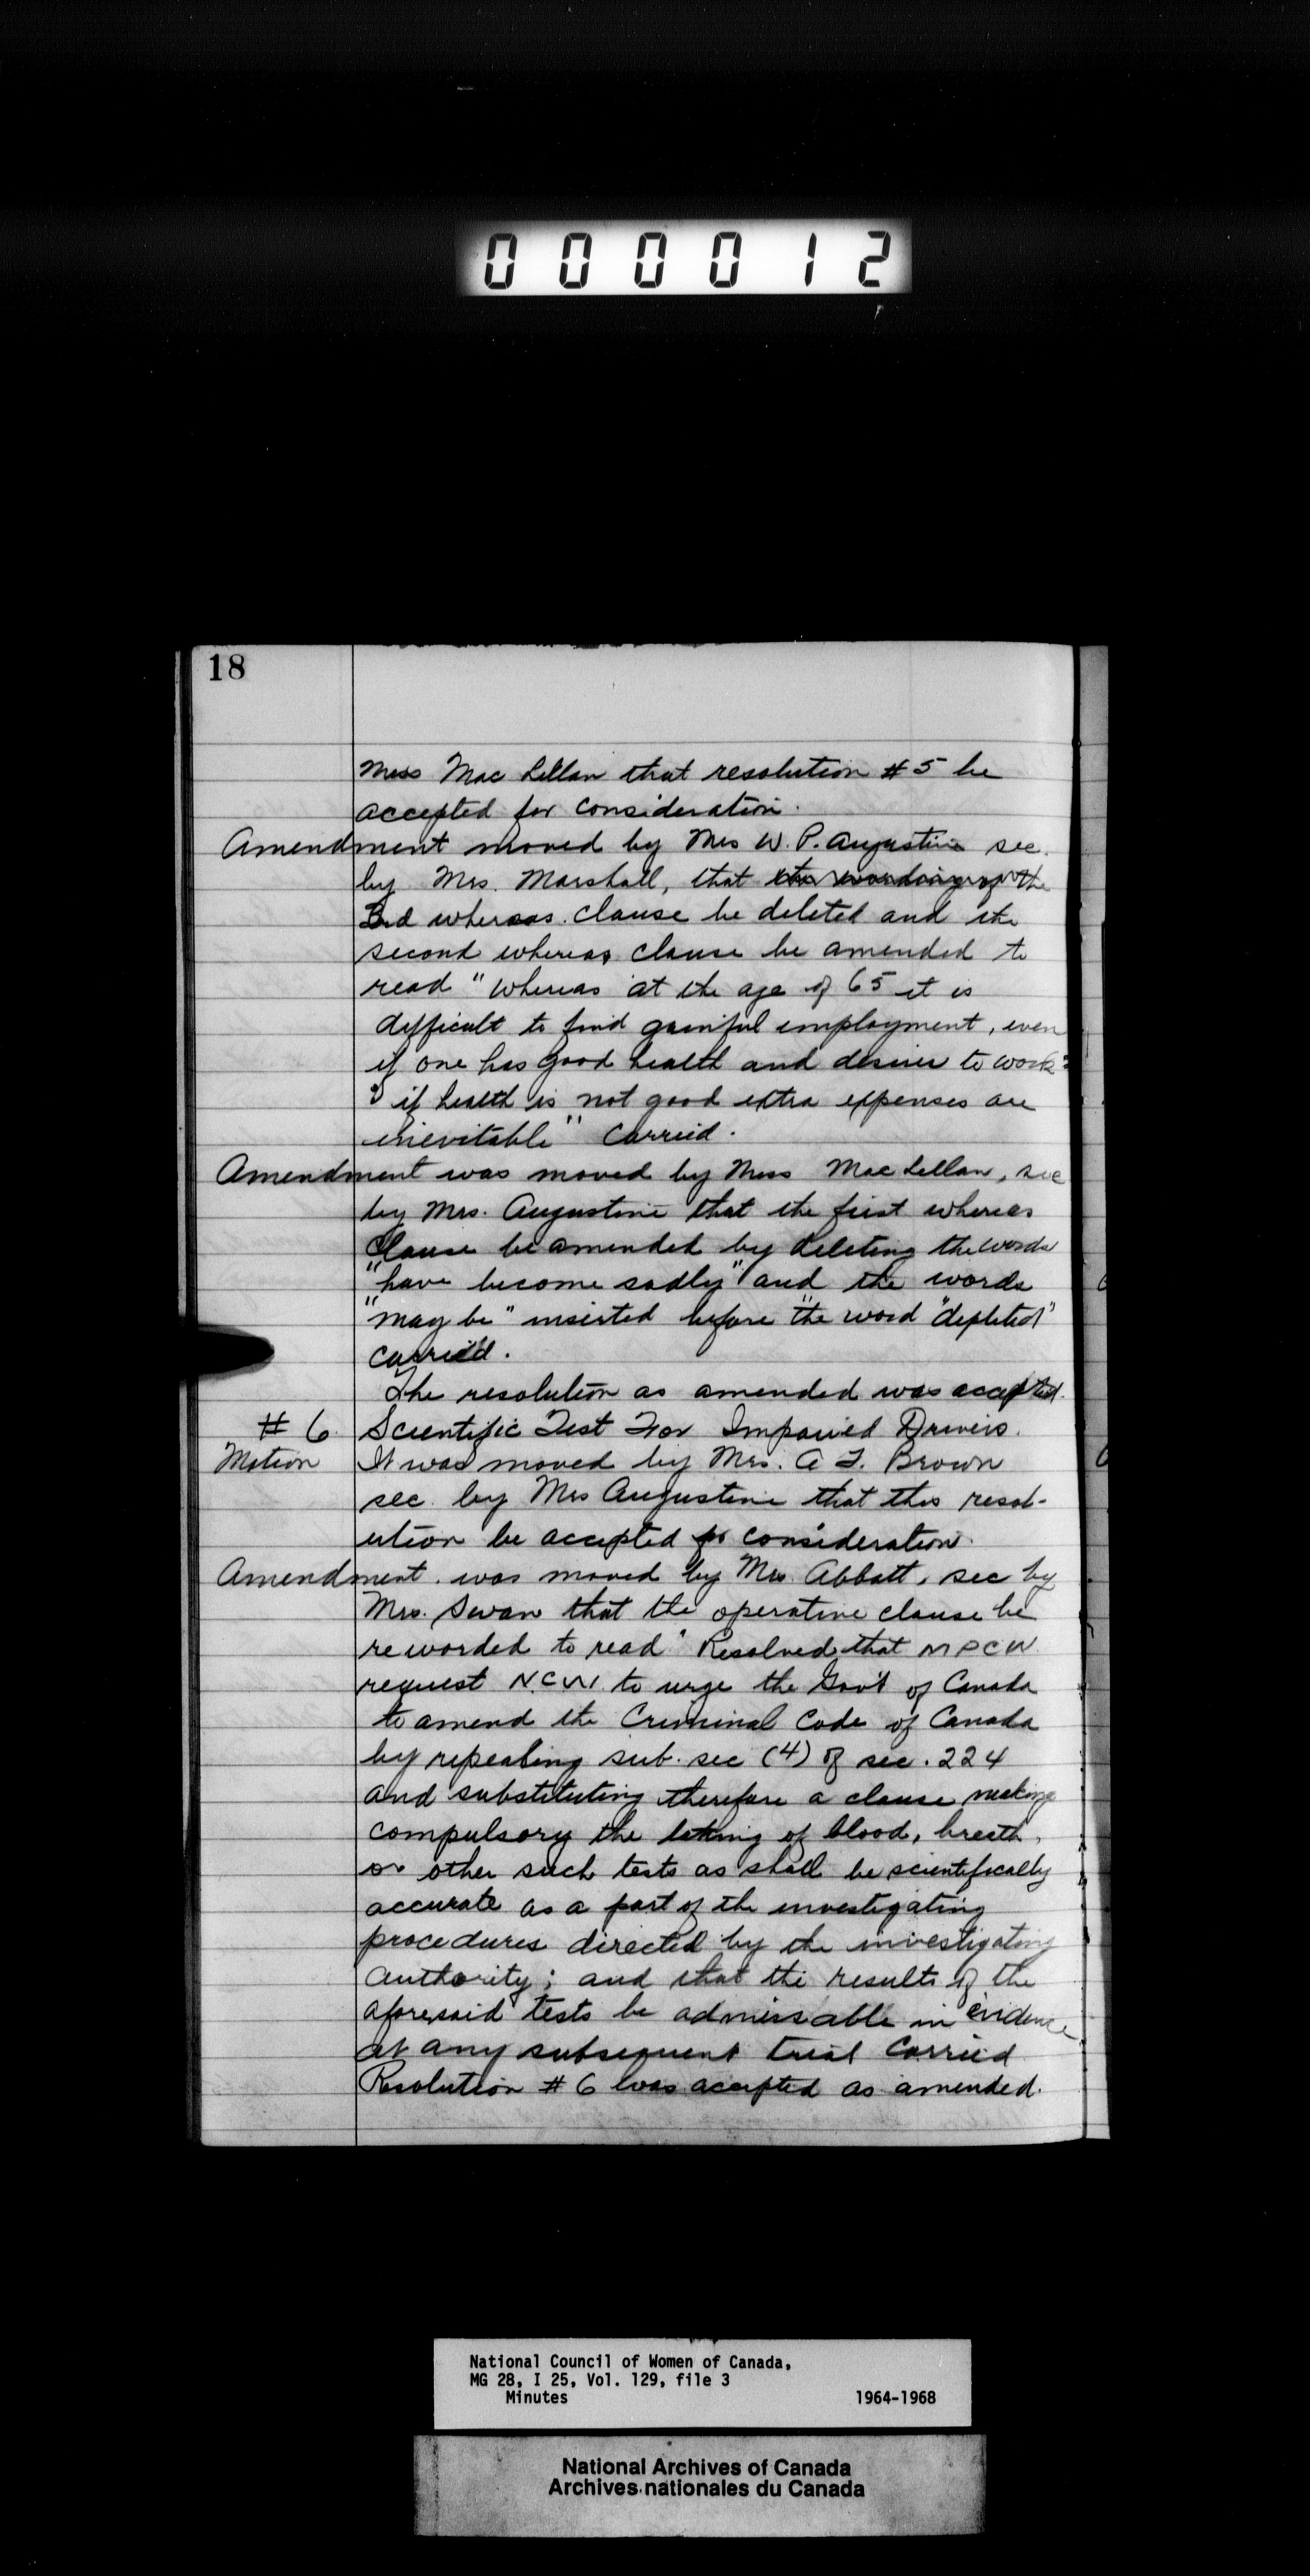 000012
18
Miss Mac Lellan that resolution # 5 be
accepted for consideration.
Amendment moved by Mrs W. P. Augustine sec.
by Mrs. Marshall, that the wording of the
3rd whereas clause be deleted and the
second whereas clause be amended to
read "whereas at the age of 65 it is
difficult to find gainful employment, even
if one has good health and desires to work
& if health is not good extra expenses are
inevitable" Carried.
Amendment was moved by Miss Mac Lellan, sec
by Mrs. Augustine that the first whereas
Clause be amended by deleting the words
"have become sadly" and the words
"may be" inserted before the word "depleted"
Carried.
The resolution as amended was accepted.
# 6 Scientific Test For Impaired Drivers.
Motion It was moved by Mrs. A F. Brown
sec. by Mrs Augustine that this resol-
ution be accepted for consideration.
Amendment was moved by Mrs. Abbott, sec by
Mrs. Swan that the operative clause be
reworded to read "Resolved that MPCW
request N.C.W. to urge the Gov't of Canada
to amend the Criminal Code of Canada
by repealing sub. sec (4) of sec. 224
and substituting therefore a clause making
compulsory the taking of blood, breath,
or other such tests as shall be scientifically
accurate as a part of the investigating
procedures directed by the investigating
authority; and that the results of the
aforesaid tests be admissable in evidence
at any subsequent trial Carried
Resolution # 6 was accepted as amended.
National Council of Women of Canada,
MG 28, I 25, Vol. 129, file 3
Minutes 1964-1968
National Archives of Canada
Archives nationales du Canada